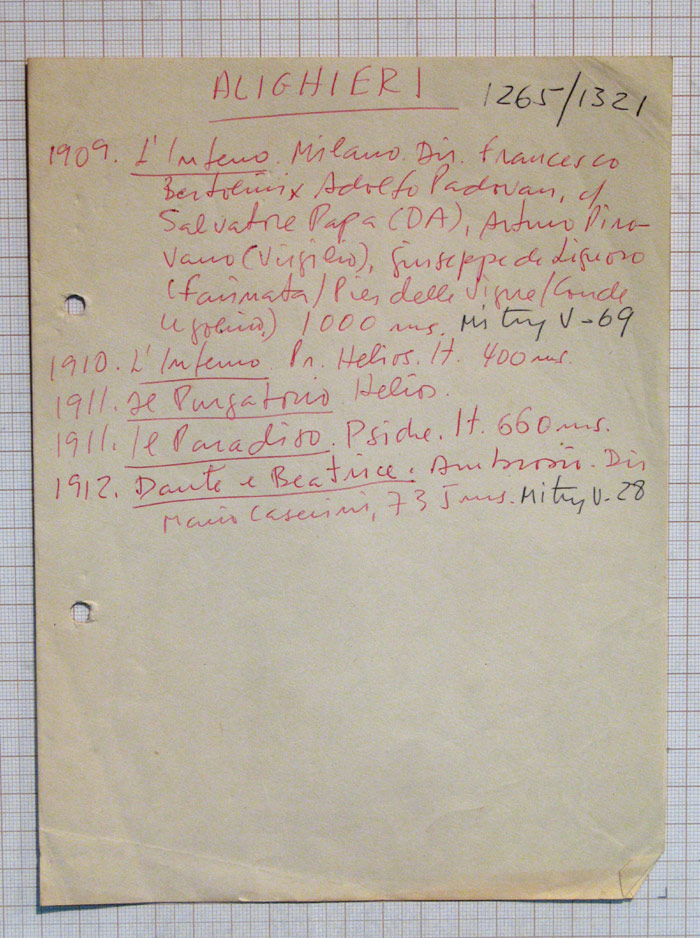 ALIGHIERI 1265/1321
1909. L'Inferno. Milano. Dir. Francesco
Bertolini x Adolfo Padovan, c/
Salvatore Papa (DA), Arturo Piro-
vano (Virgilio), Giuseppe de Liguoro
(Farinata / Pier delle Vigne / Conde
Ugolino) 1000 ms. Mitry V-69
1910. L'Inferno Pr. Helios. It. 400 ms.
1911. Il Purgatorio. Helios.
1911. Il Paradiso. Psiche. It. 660 ms.
1912. Dante e Beatrice. Ambrosio. Dir
Mario Caserini, 735 ms. Mitry V-28